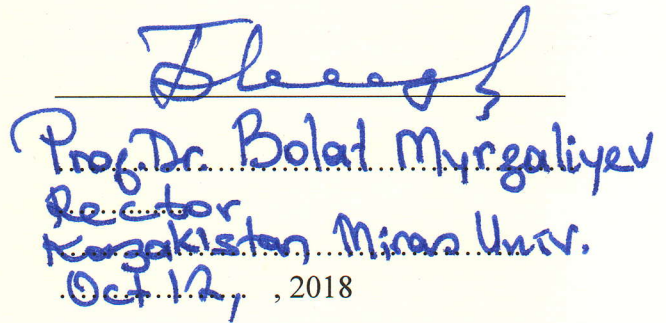 Prof. Dr. Bolat Myrzaliyev
Rector
Kazakistan Miras Univ.
Oct 12, , 2018